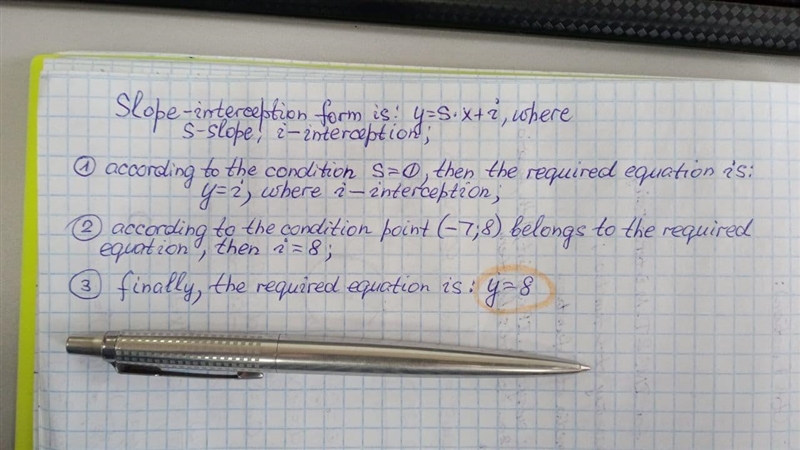 Slope-interception form is: y=s·x+i, where
s-slope; i-interception;
① according to the condition s=0, then the required equation is:
y=i, where i-interception;
② according to the condition point (-7;8) belongs to the required
equation, then i=8;
③ finally, the required equation is: y=8